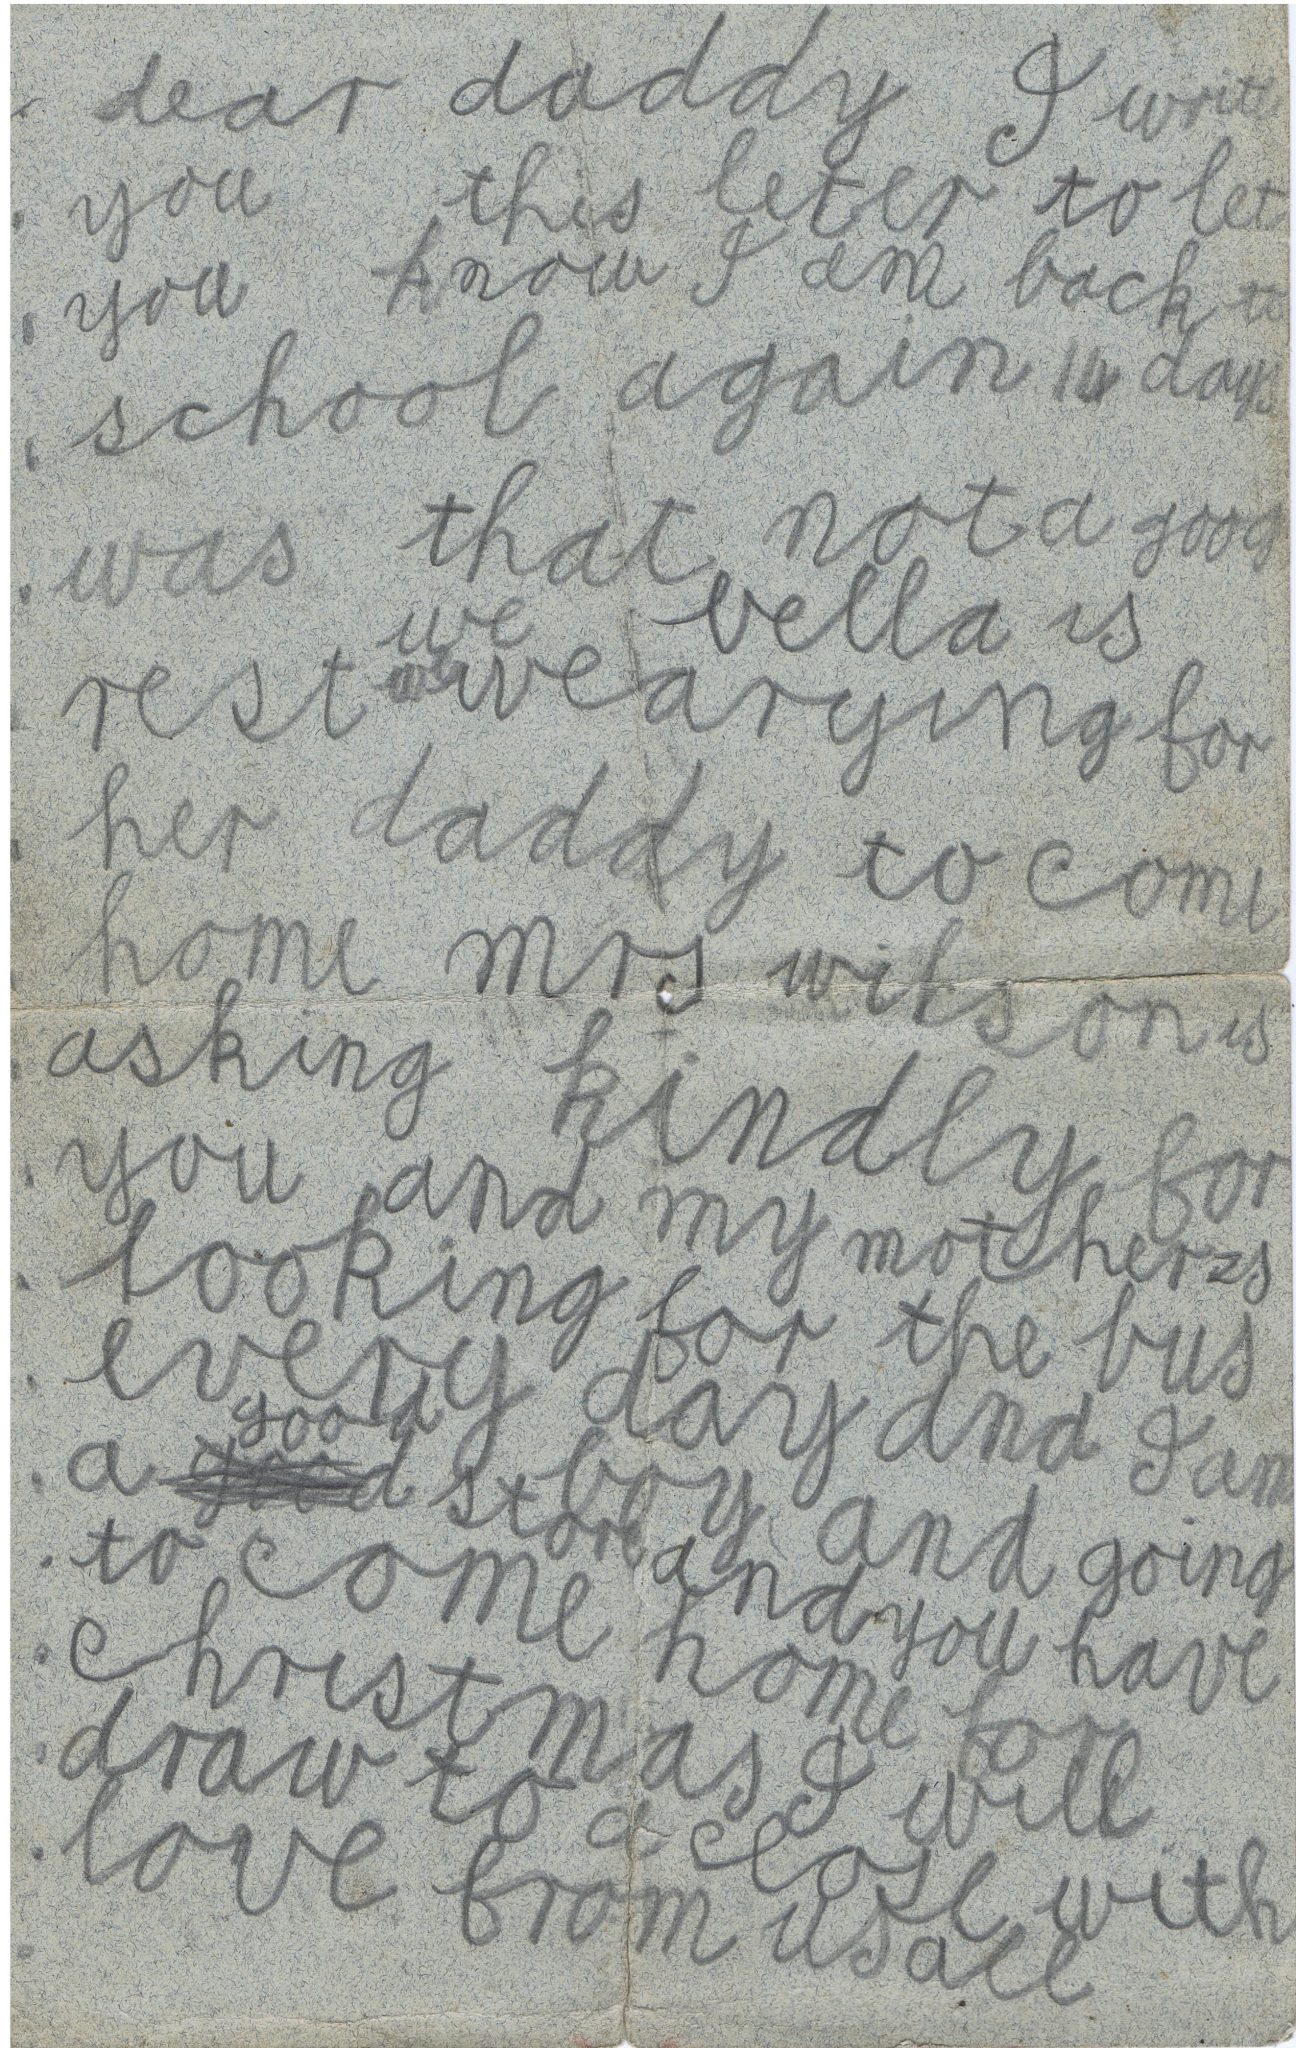 dear daddy I write
you this leter to let
you know I am back to
school again 14 days
was that not a good
rest we bella is
wearying for
her daddy to come
home mrs wilson is
asking kindly for
you and my motherzs
looking for the bus
every day and I am
a good boy and going
to store and you have
come home for
christmas I will
draw to a close with
love from us all